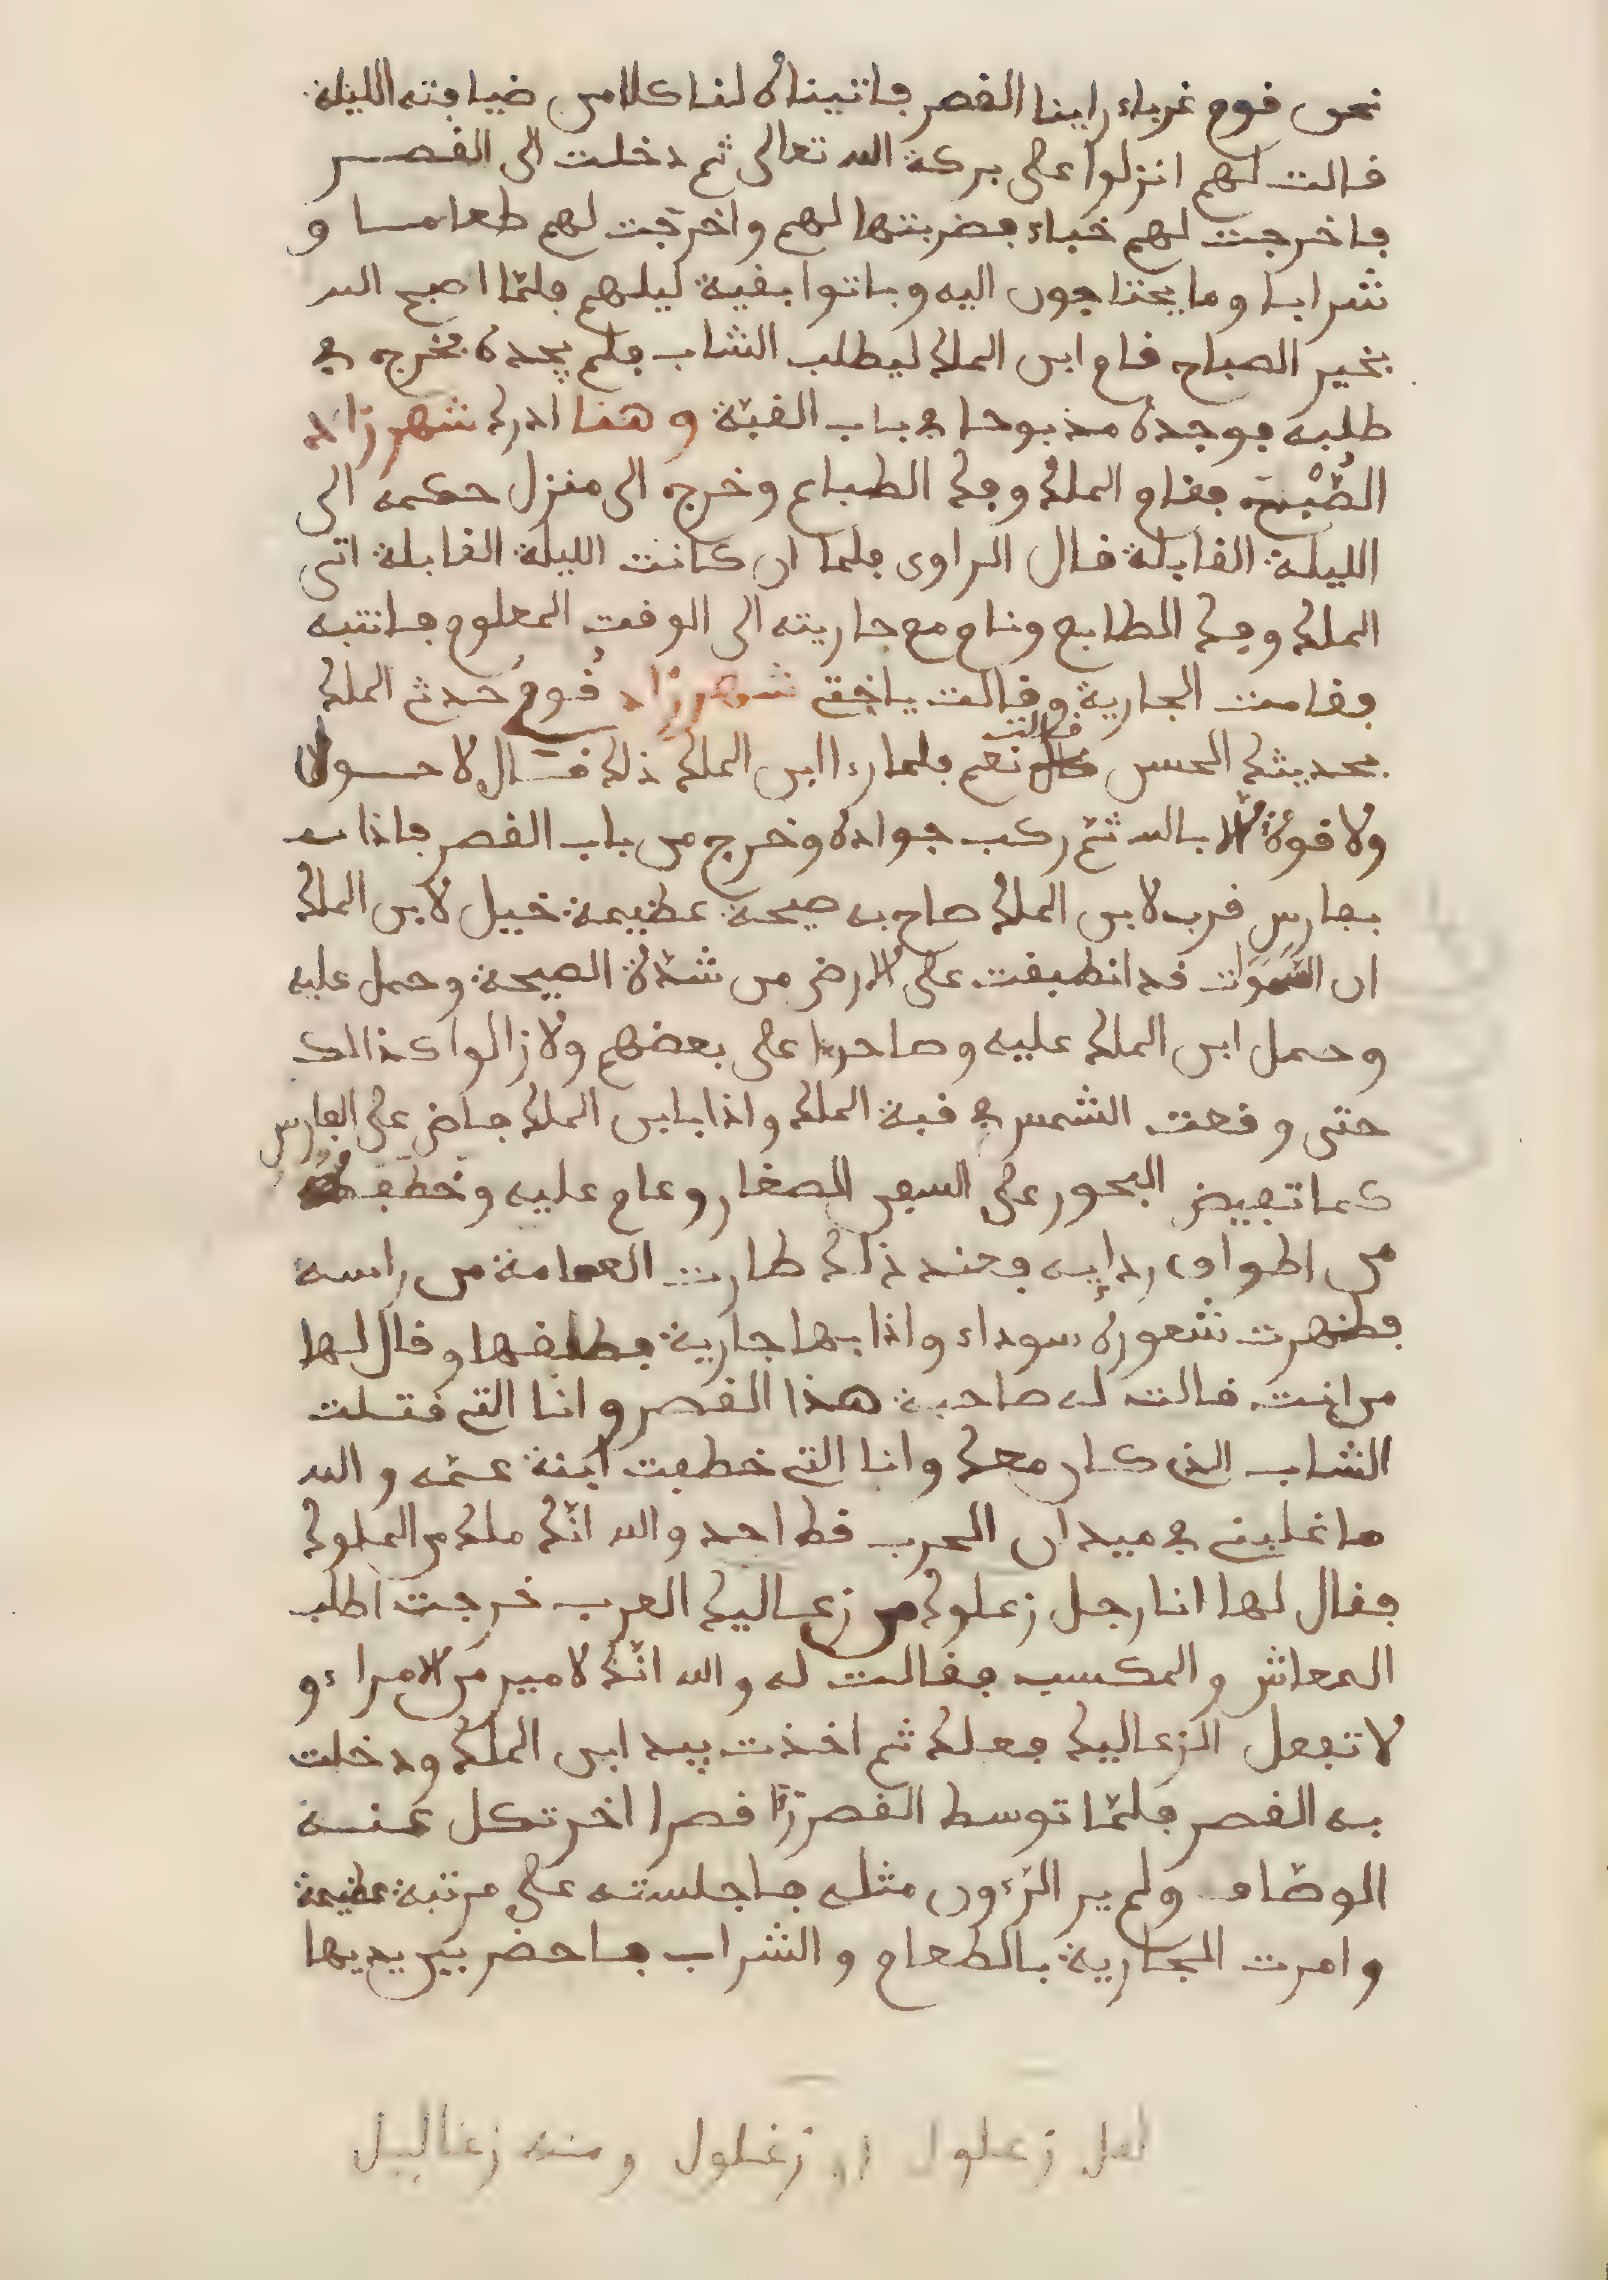 نحن قوم غرباء راينا القصر فاتيناه لنا كلامن ضيافته الليلة
قالت لهم انزلوا على بركة الله تعالى ثم دخلت الى القصر
فاخرجت لهم خباء فضربتها لهم واخرجت لهم طعاما و
شرابا وما يحتاجون اليه وباتوا بقية ليلهم فلمّا اصبح الله
بخير الصباح قام ابن الملك ليطلب الشاب فلم يجده فخرج في
طلبه فوجده مذبوحا في باب القبّة وهنا ادرك شهرزاد
الصُّبْح فقام الملك وفك الطباع وخرج الى منزل حكمه الى
الليلة القابلة قال الراوى فلما ان كانت الليلة القابلة اتى
الملك وفك الطابع ونام مع جاريته الى الوقت المعلوم فانتبه
فقامت الجارية وقالت ياختي شهرزاد قُومُ حدث الملك
بحديثك الحسن قالت نعم فلما رءا ابن الملك ذلك قال لا حول
ولا قوة الّا بالله ثمّ ركب جواده وخرج من باب القصر فاذا
بفارس قرب لابن الملك صاح به صيحة عظيمة خيل لابن الملك
ان السَّمَوَات قد انطبقت على الارض من شدّة الصيحة وحمل عليه
وحمل ابن الملك عليه وصاحوا على بعضهم ولا زالوا كذالك
حتى وقعت الشمس في قبة الملك واذا بابن الملك جاض على الفارس
كما تفيض البحور على السفن الصغار وعام عليه وخطفه
من اطواق ردايه فعند ذلك طارت العمامة من راسه
فظهرت شعوره سوداء واذا بها جارية فطلقها وقال لها
من انت قالت له صاحبة هذا القصر وانا التي قتلت
الشاب الذي كان معك وانا التي خطفت ابنة عمّه والله
ما غلبني في ميدان الحرب قط احد والله انّك ملك من الملوك
فقال لها انا رجل زعلوك من زعاليك العرب خرجت اطلب
المعاش والمكسب فقالت له والله انّك لامير من الامراء و
لا تفعل الزعاليك فعلك ثم اخذت بيد ابن الملك ودخلت
به القصر فلمّا توسط القصر رَءَا قصرا اخر تكل عنه
الوصّاف ولم ير الرّءون مثله فاجلسته على مرتبة عظيمة
وامرت الجارية بالطعام والشراب فاحضر بين يديها
لعل زعلول ان زغلول ومنه زغاليل